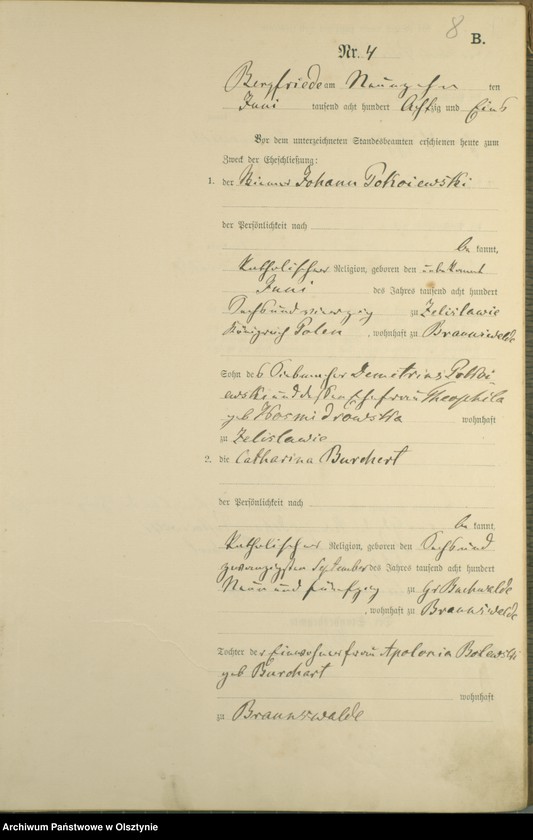 8
B.
Nr. 4
Bergfriede am Neunzehn ten
Juni tausend acht hundert Achtzig und Eins
Vor dem unterzeichneten Standesbeamten erschienen heute zum
Zweck der Eheschließung:
1. der Johann Pokoiewski
der Persönlichkeit nach
be kannt,
katholischer Religion, geboren den unbekannt
Juni des Jahres tausend acht hundert
Sechsundvierzig zu Zelislawie
Königreich Polen, wohnhaft zu Braunswalde
Sohn des Siebmacher Demetrius Pokoi
ewski und dessen Ehefrau Theophila
geb Kosmidrowska wohnhaft
zu Zelislawie
2. die Catharina Burchert
der Persönlichkeit nach
be kannt,
katholischer Religion, geboren den Sechsund
zwanzigsten September des Jahres tausend acht hundert
Neun und fünfzig zu Gr Buchwalde
, wohnhaft zu Braunswalde
Tochter der Einwohnerfrau Apolonia Bolewski
geb Burchart
wohnhaft
zu Braunswalde
Archiwum Państwowe w Olsztynie